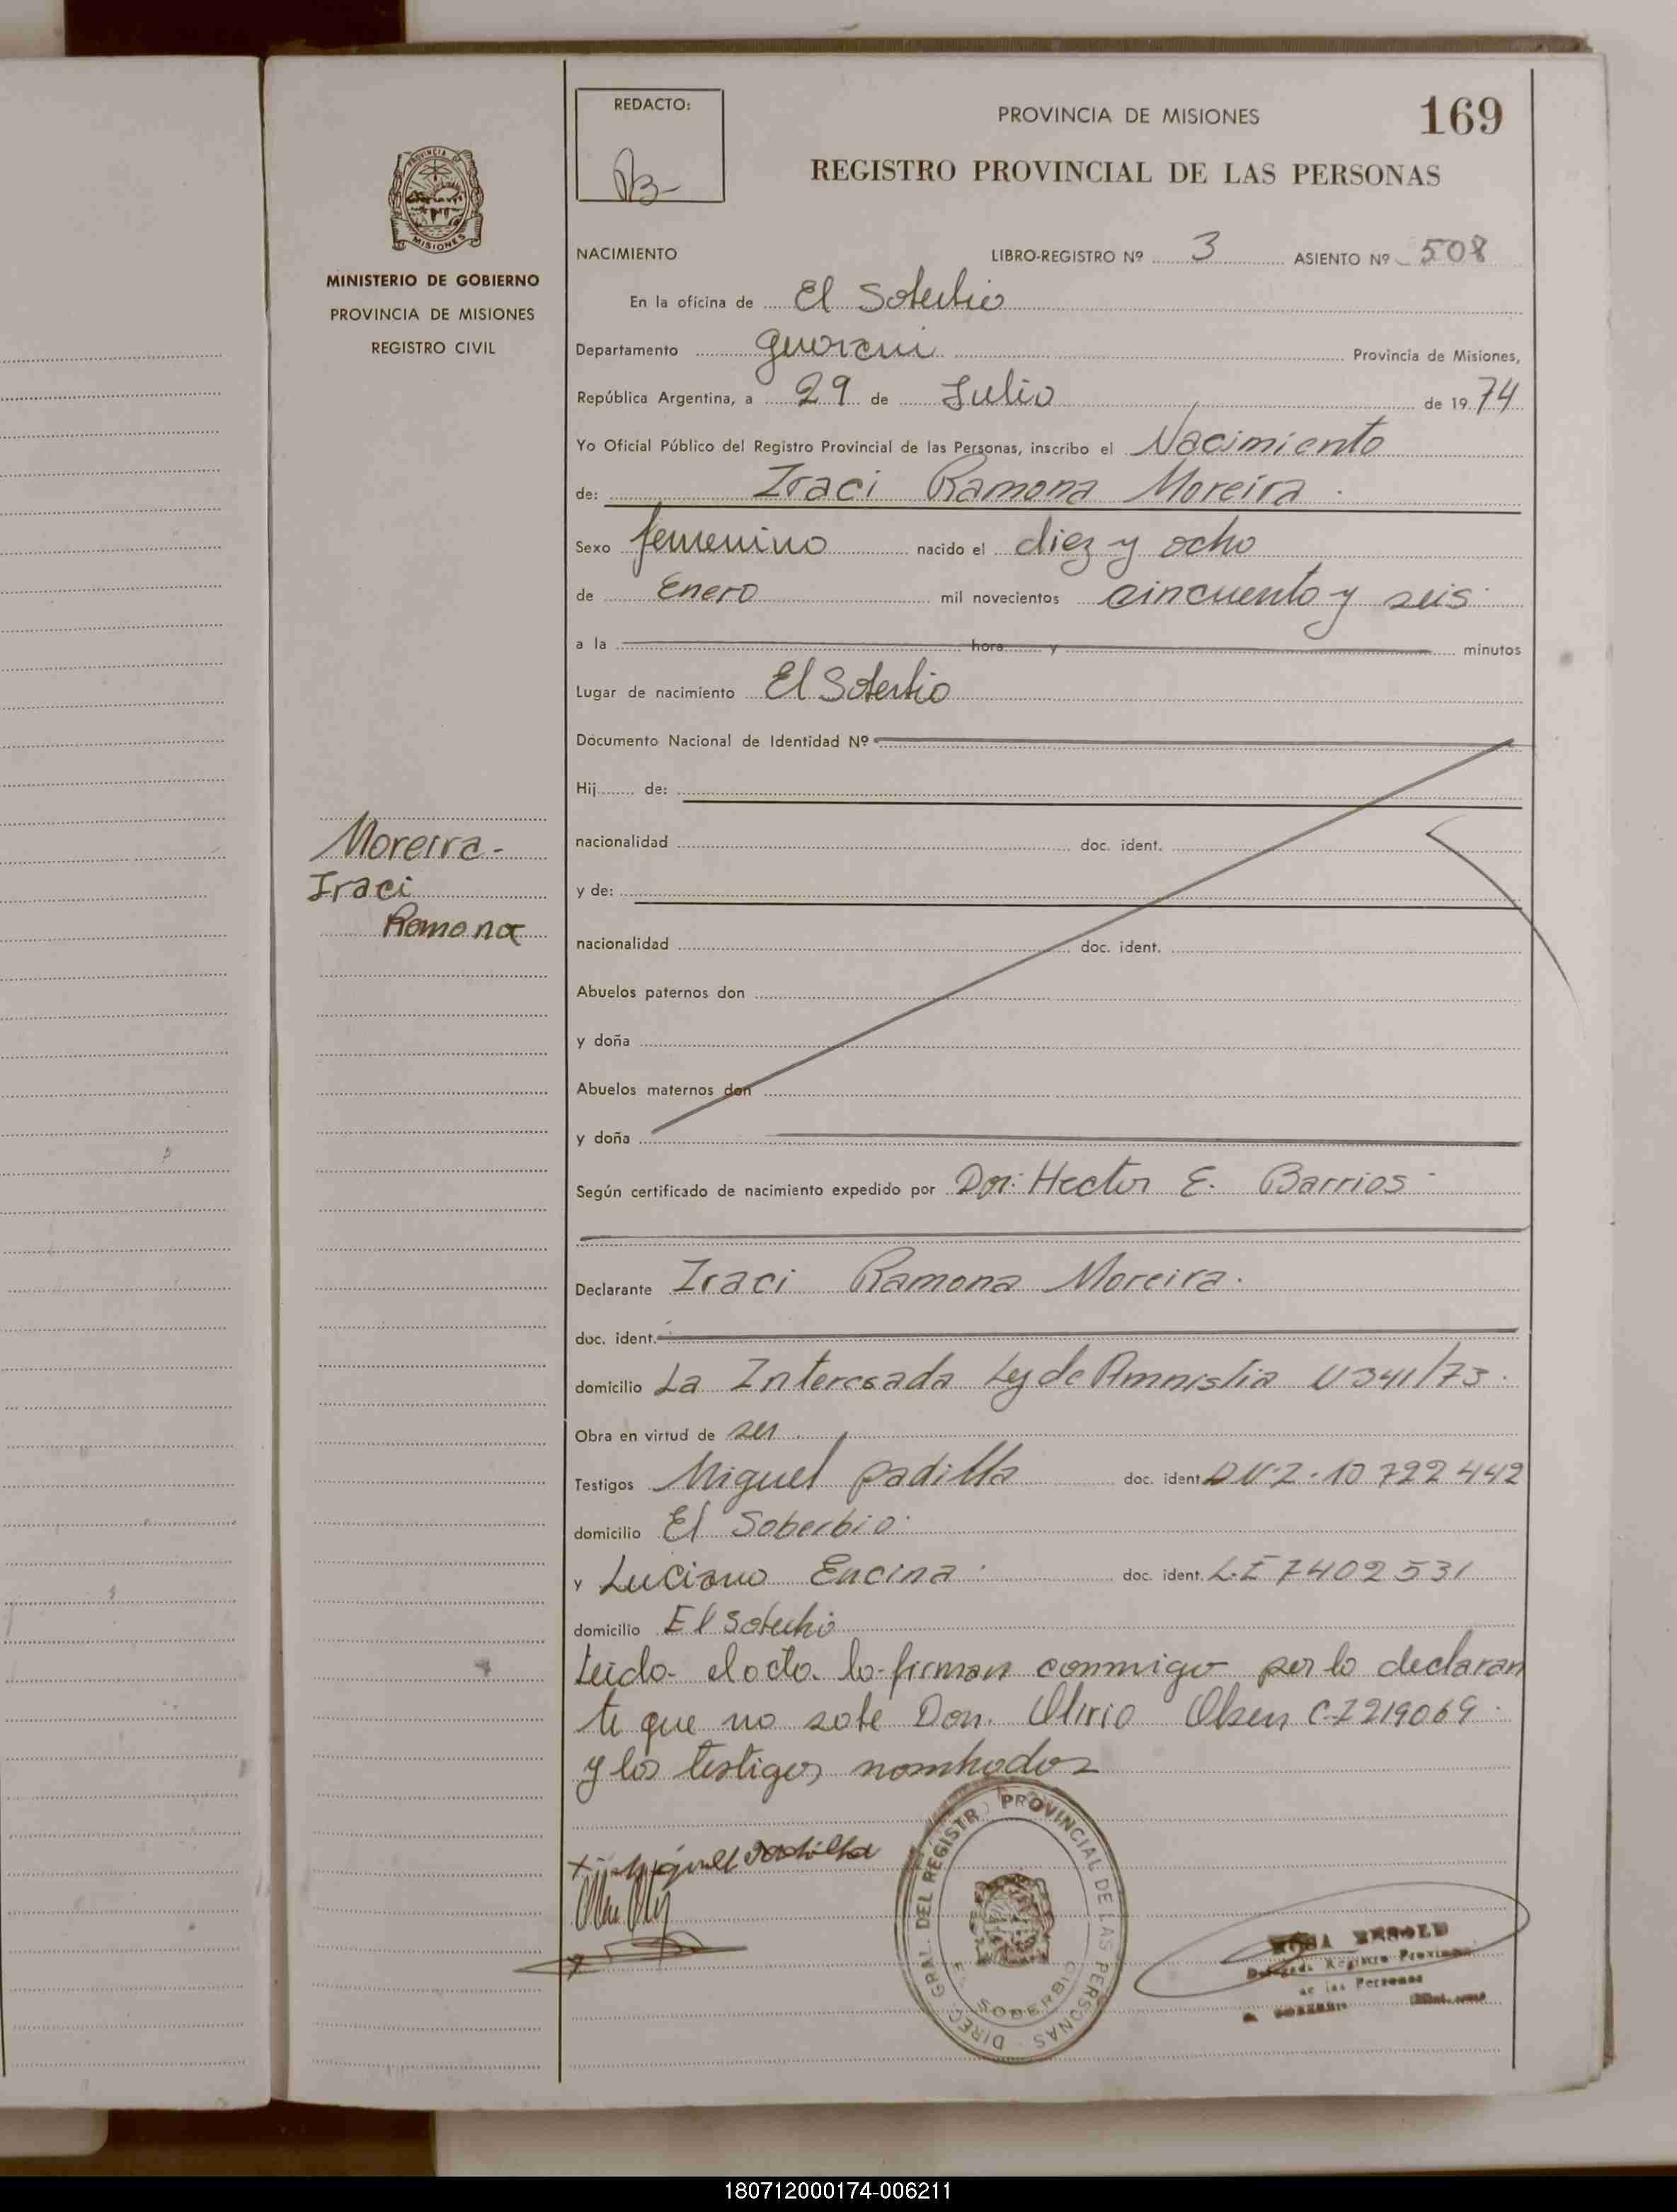 REDACTO:
PROVINCIA DE MISIONES
169
REGISTRO PROVINCIAL DE LAS PERSONAS
PROVINCIA
MISIONES
MINISTERIO DE GOBIERNO
PROVINCIA DE MISIONES
REGISTRO CIVIL
NACIMIENTO LIBRO-REGISTRO Nº 3 ASIENTO Nº 508
En la oficina de El Soberbio
Departamento Guarani Provincia de Misiones,
República Argentina, a 29 de Julio de 19 74
Yo Oficial Público del Registro Provincial de las Personas, inscribo el Nacimiento
de: Iraci Ramona Moreira.
Sexo femenino nacido el diez y ocho
de Enero mil novecientos cincuenta y seis.
a la hora y minutos
Lugar de nacimiento El Soberbio
Documento Nacional de Identidad Nº
Hij de:
Moreira-
nacionalidad doc. ident.
Iraci
y de:
Ramona
nacionalidad doc. ident.
Abuelos paternos don
y doña
Abuelos maternos don
y doña
Según certificado de nacimiento expedido por Dr: Hector E. Barrios
Declarante Iraci Ramona Moreira.
doc. ident.
domicilio La Interesada Ley de Amnistia 341/73.
Obra en virtud de ser.
Testigos Miguel Padilla doc. ident. 10 722 442
domicilio El Soberbio.
y Luciano Encina. doc. ident. L.E 7402531
domicilio El Soberbio
Leido el acta la firman conmigo por la declaran
te que no sabe Don. Olirio Olsen 219069.
y los testigos nombrados
Miguel Padilla
DIREC. GRAL. DEL REGISTRO PROVINCIAL DE LAS PERSONAS
SOBERBIO
ROSA
Registro Provincial
de las Personas
SOBERBIO
180712000174-006211